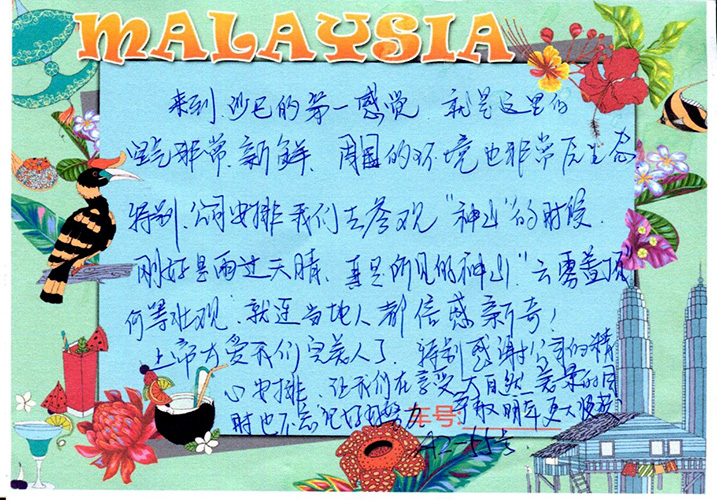 MALAYSIA
来到沙巴的第一感觉 就是这里的
空气非常新鲜、周围的环境也非常原生态
特别、公司安排我们去参观“神山”的时段.
刚好是雨过天晴、真是所见的神山“云雾盖顶”
何等壮观、就连当地人都倍感新奇!
上帝太爱我们完美人了、特别感谢公司的精
心安排、让我们在享受大自然美景的同
时也不忘记好好努力 争取明年更大
车号: A2-11号